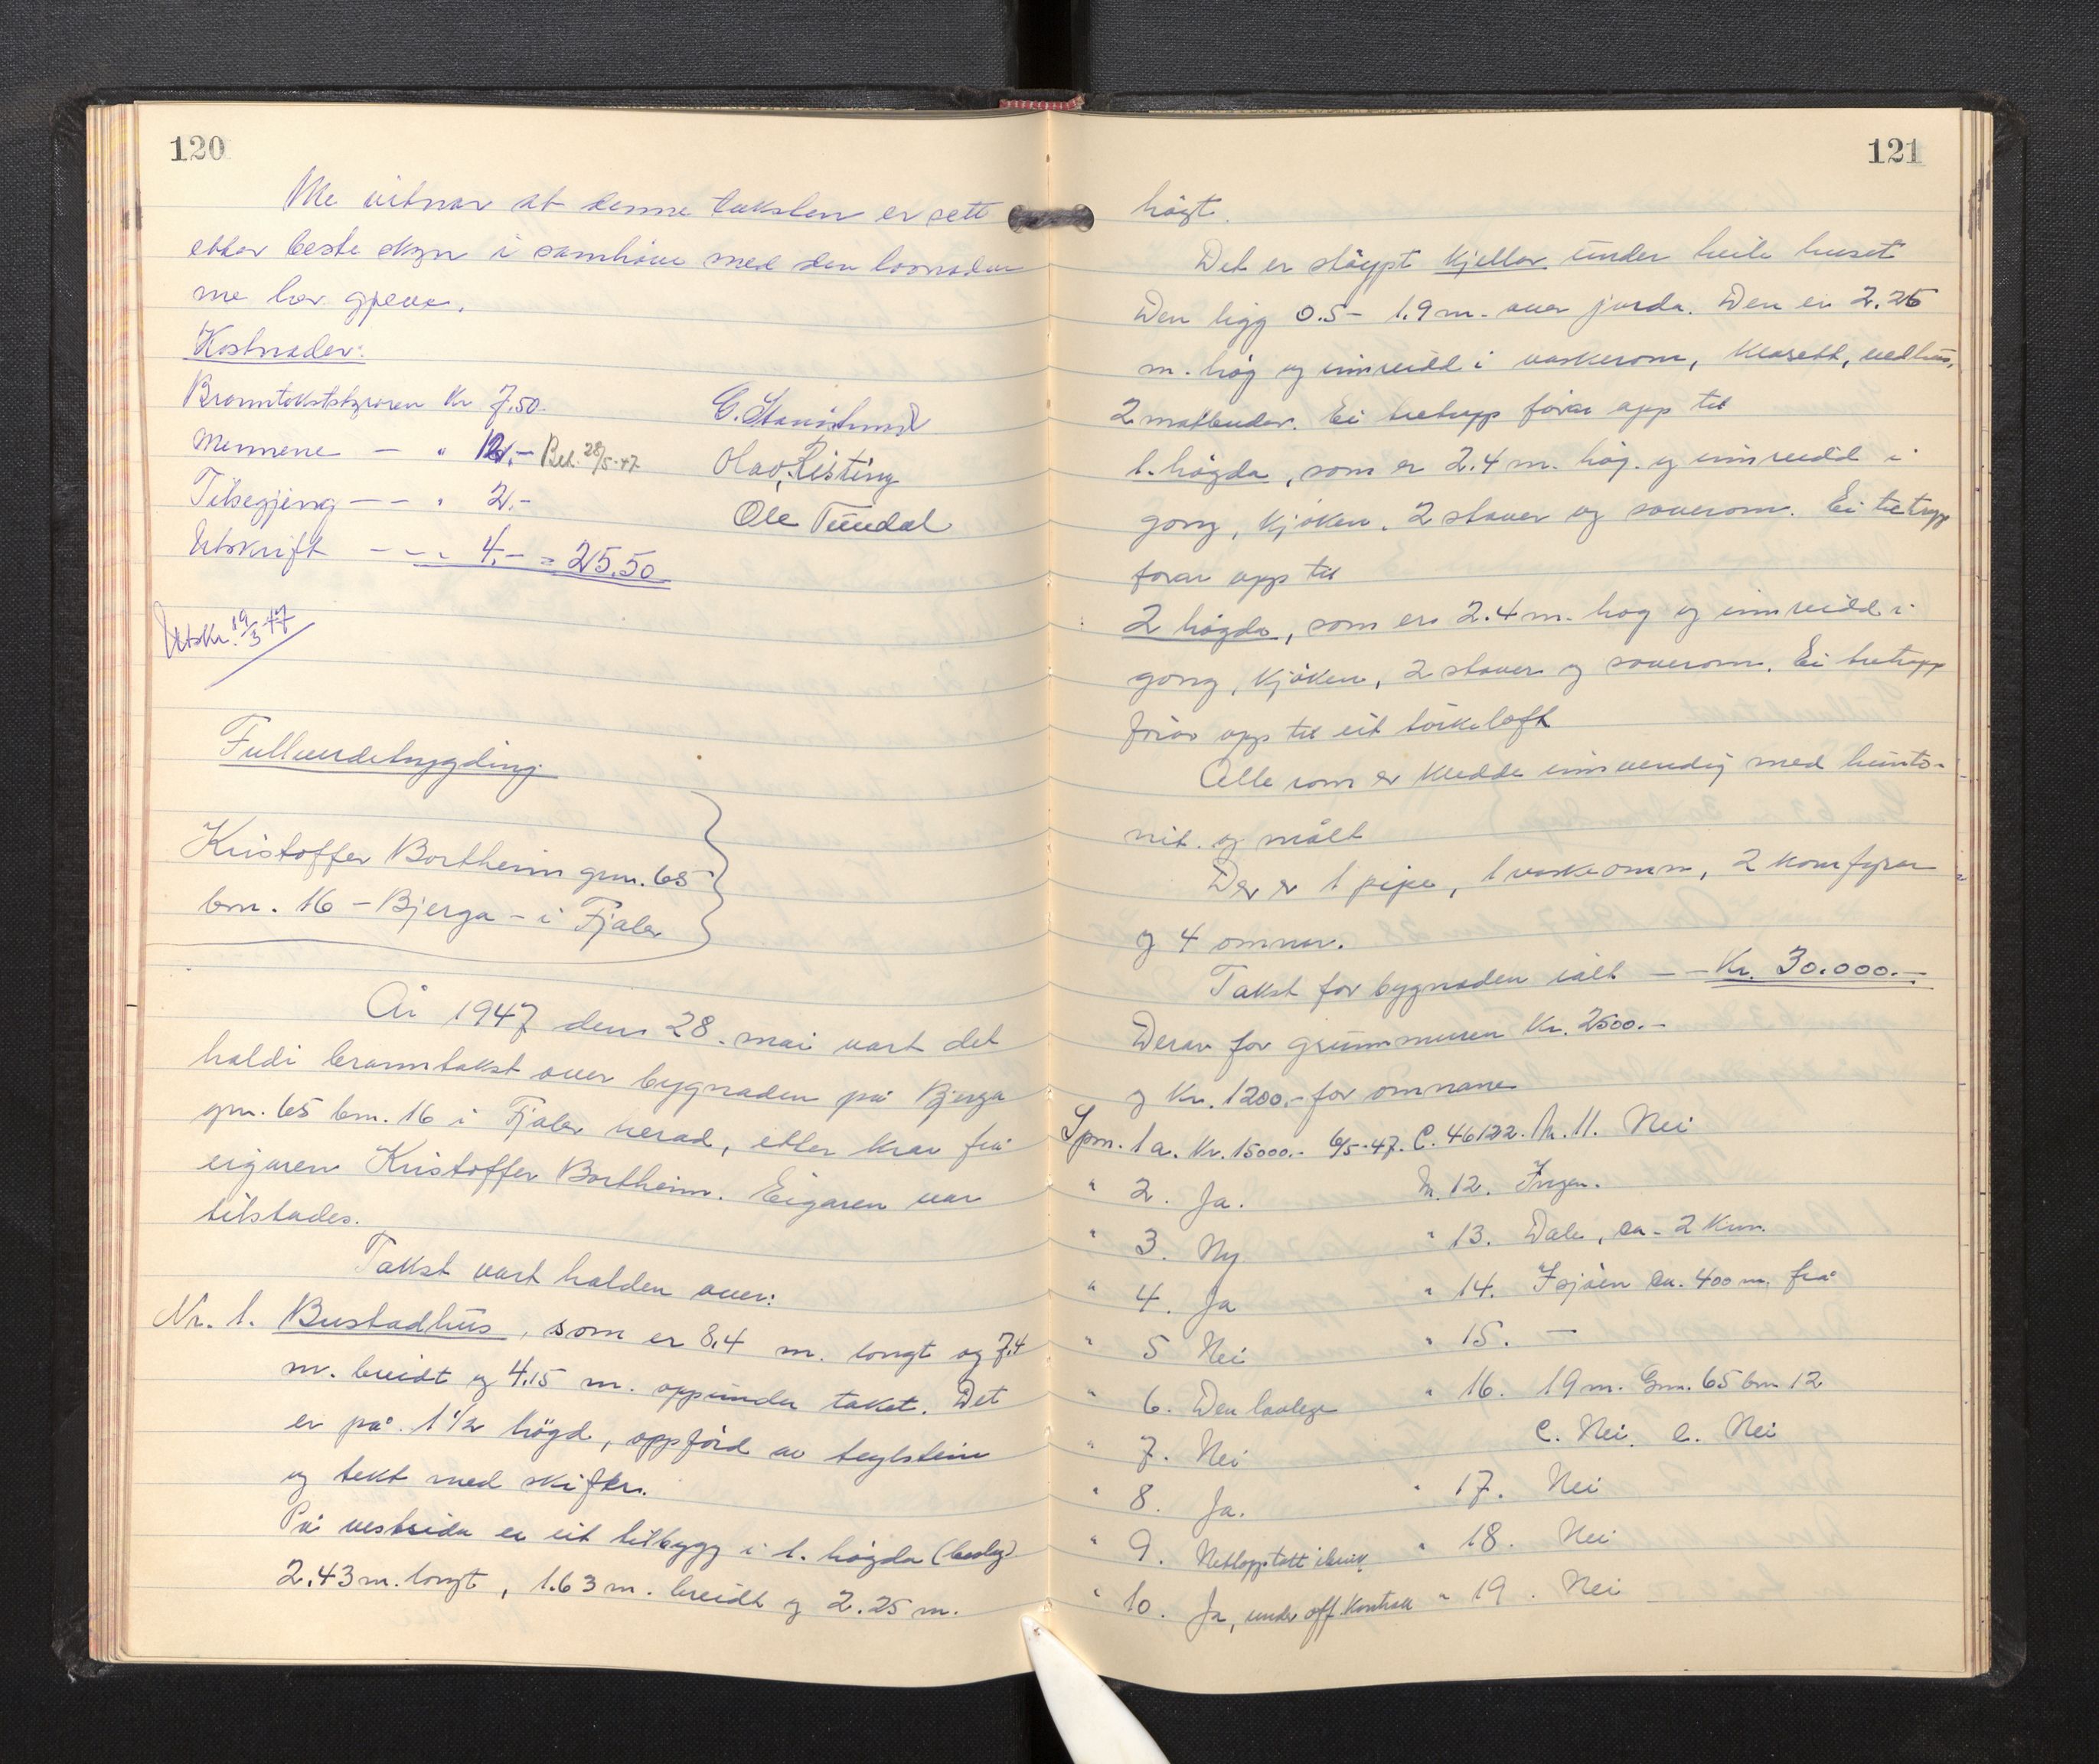 120
Me vitnar at denne taksten er sett
etter beste skyn i samhøve med den lovnaden
me har gjeve.
Kostnader:
Branntakststyraren Kr 7,50.
Mennene — " 12.- Bet. 28/5-47
Tilsegjing — — " 2.-
Utskrift — — " 4.- = 25.50
Olav Risting
Ole Tundal
Utskr. 19/3 47
Fullverdetrygding
Kristoffer Bortheim gnr. 65
bnr. 16 - Bjerga - i Fjaler
År 1947 den 28. mai vart det
haldi branntakst over bygnaden på Bjerga
gnr. 65 bnr. 16 i Fjaler herad, etter krav frå
eigaren Kristoffer Bortheim. Eigaren var
tilstades.
Takst vart halden over:
Nr. 1. Bustadhus, som er 8,4 m. langt og 7,4
m. breidt og 4,15 m. oppunder taket. Det
er på 1 1/2 högd, oppförd av teglstein
og tekt med skifer.
På vestsida er eit tilbygg i 1. högda
2.43 m. langt, 1.63 m. breidt og 2.25 m.
121
högt.
Det er stöypt kjellar under heile huset
Den ligg 0.5 - 1.9 m. over jorda. Den er 2.25
m. hög og innreidd i vaskerom, klosett, vedhus,
2 matbuder. Ei tretrapp förar opp til
1. högda, som er 2.4 m. hög og innreidd i
gong, kjöken, 2 stover og soverom. Ei tretrapp
förar opp til
2 högda, som er 2.4 m. hög og innreidd i
gong, kjöken, 2 stover og soverom. Ei tretrapp
förar opp til eit törkeloft
Alle rom er kledde innvendig med hunto-
nit. og målt
Der er 1 pipe, 1 vaskeomn, 2 komfyrar
og 4 omnar.
Takst for bygnaden ialt — — Kr. 30.000.—
Derav for grunnmuren Kr. 2500.-
og Kr. 1200.- for omnane
Spm. 1 a. Kr. 15000.- 6/5-47. C. 46122. Nr. 11. Nei
" 2. Ja. Nr. 12. Ingen.
" 3. Ny " 13. Dale, ca. 2 km.
" 4. Ja " 14. I sjöen ca. 400 m. frå
" 5 Nei " 15. —
" 6. Den lovlege " 16. 19 m. Gnr. 65 bnr 12
C. Nei. e. Nei
" 7. Nei
" 8. Ja. " 17. Nei
" 9. Nettopp tatt i bruk " 18. Nei
" 10. Ja, under off. kontroll " 19. Nei